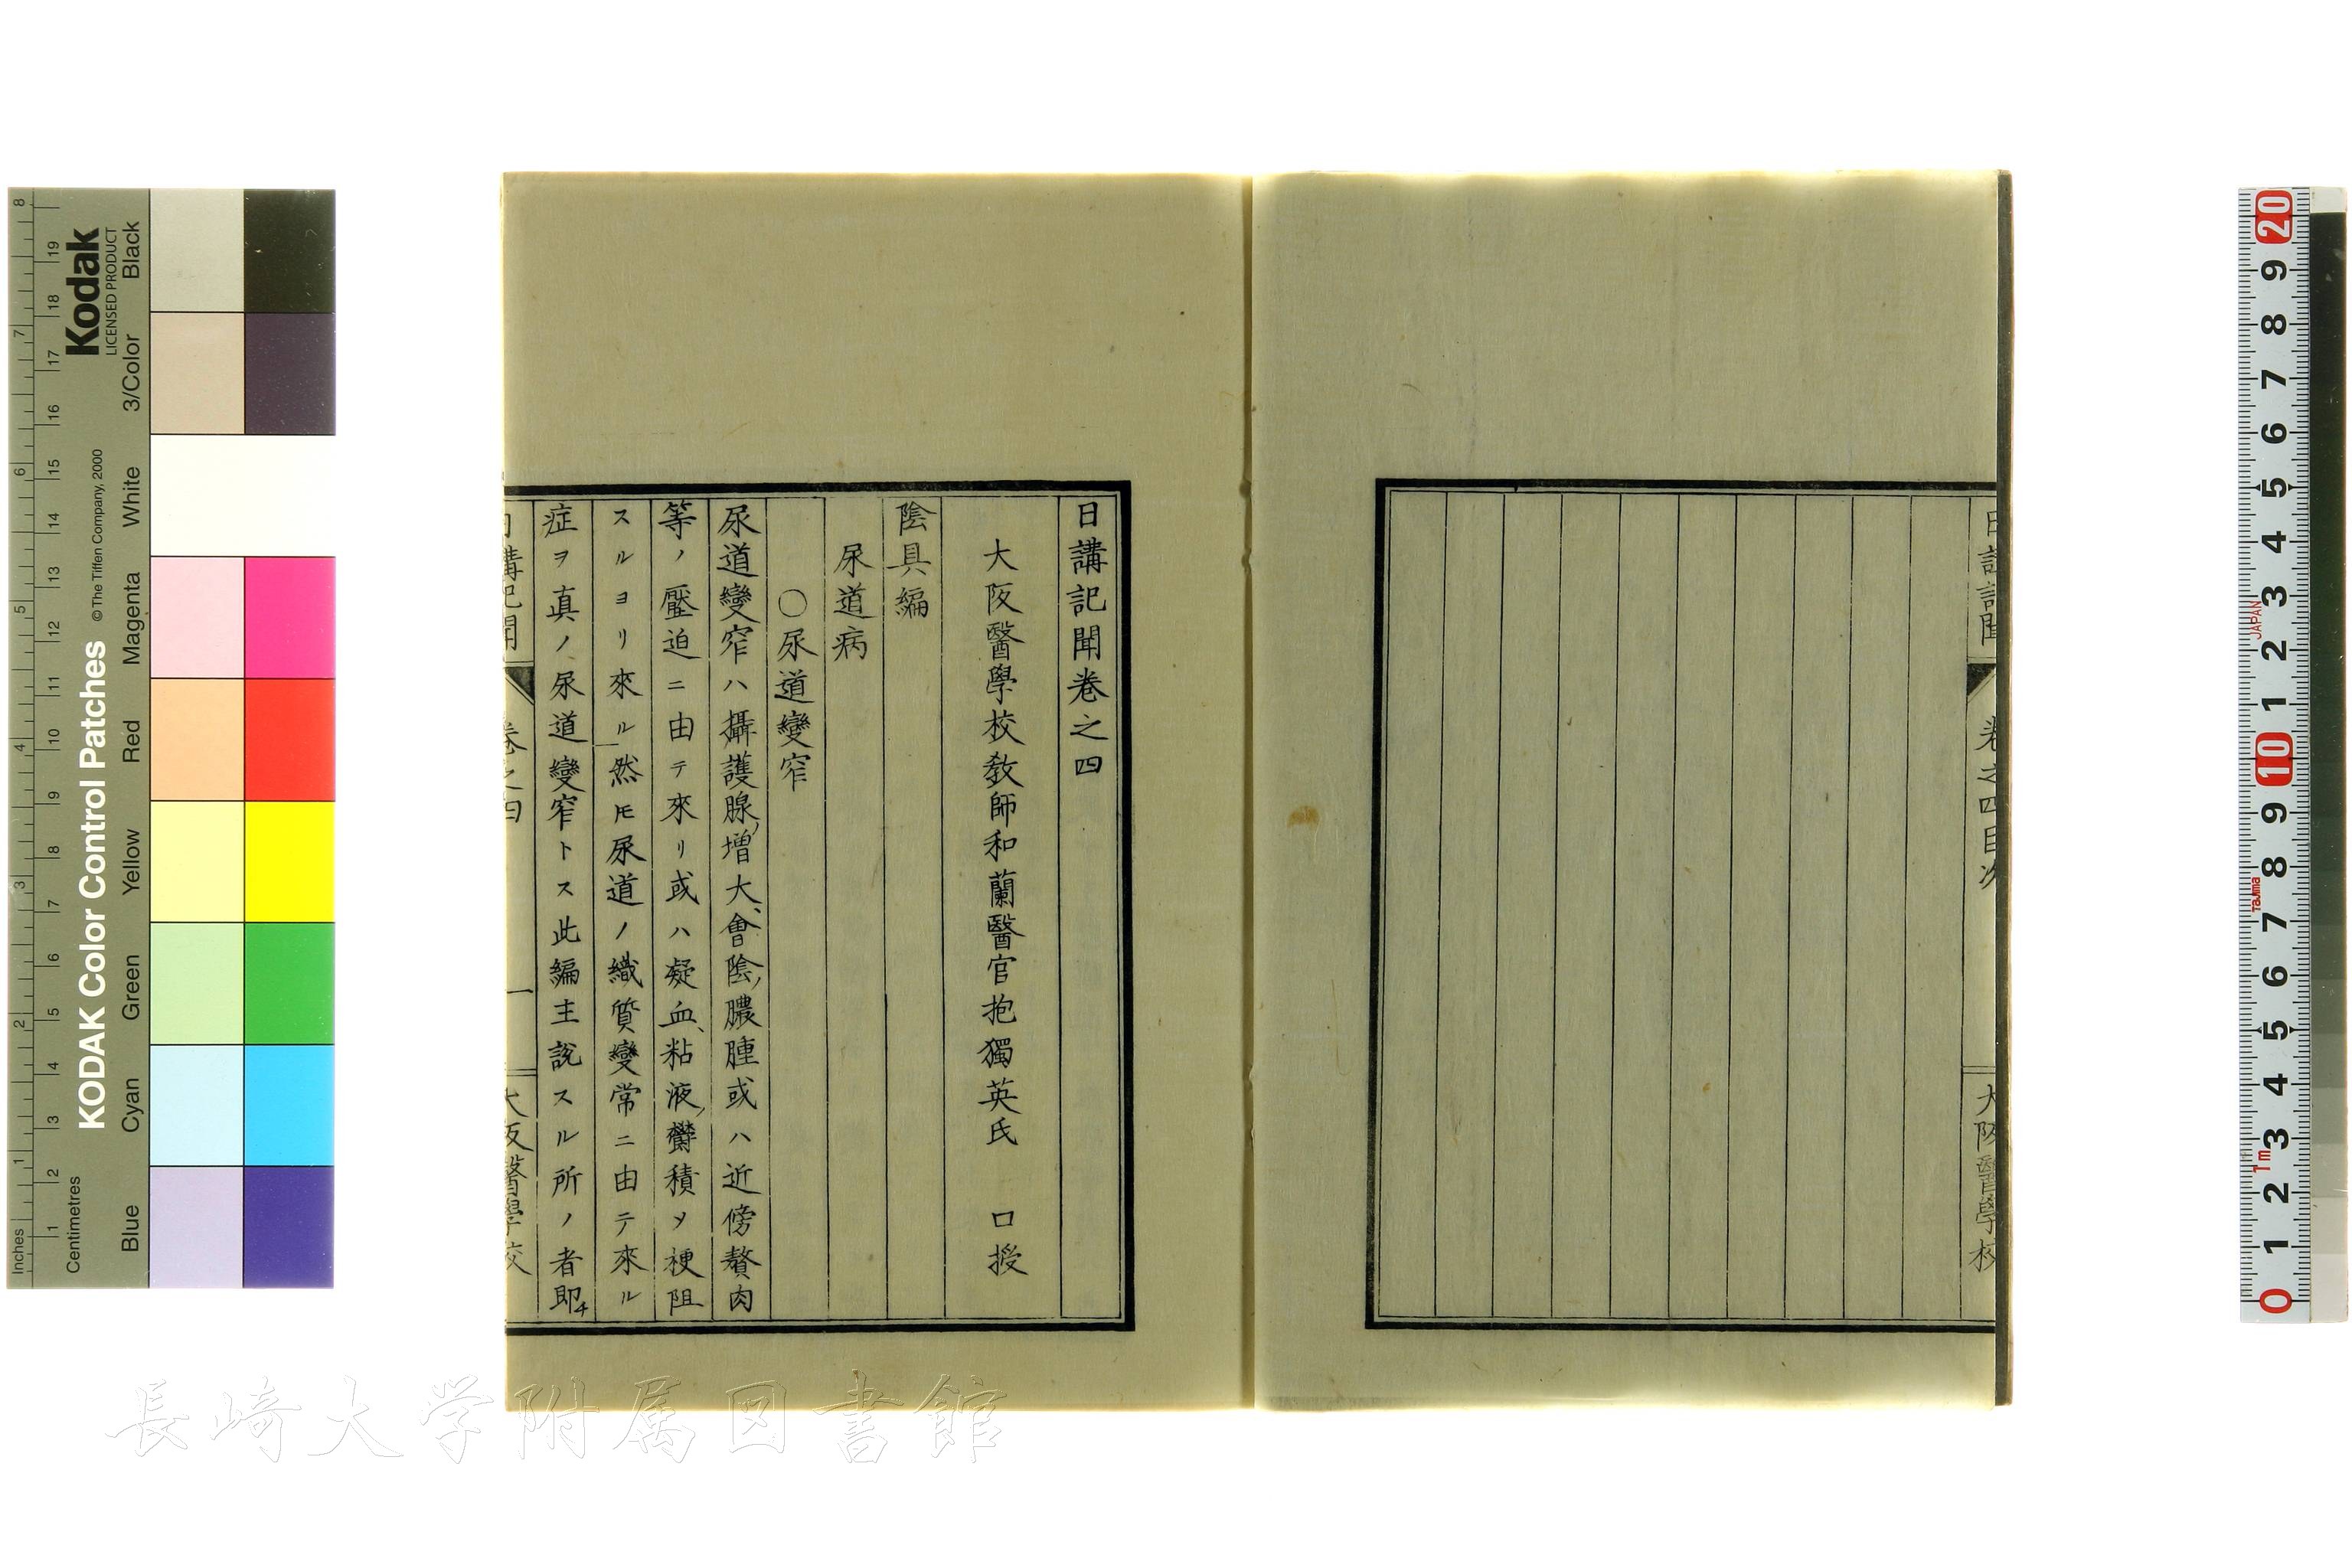 日講記聞
卷之四目次
大阪醫學校
日講記聞卷之四
大阪醫學校教師和蘭醫官抱獨英氏 口授
陰具編
尿道病
〇尿道變窄
尿道變窄ハ攝護腺、增大、會陰、膿腫或ハ近傍贅肉
等ノ壓迫ニ由テ來リ或ハ凝血、粘液、欝積〆梗阻
スルヨリ來ル然𪜈尿道ノ織質變常ニ由テ來ル
症ヲ真ノ尿道變窄トス此編主說スル所ノ者即チ
日講記聞
卷之四
一
大阪醫學校
Kodak
LICENSED PRODUCT
KODAK Color Control Patches
© The Tiffen Company, 2000
Inches
Centimetres
Blue
Cyan
Green
Yellow
Red
Magenta
White
3/Color
Black
1 2 3 4 5 6 7 8
1 2 3 4 5 6 7 8 9 10 11 12 13 14 15 16 17 18 19
20 9 8 7 6 5 4 3 2 1 10 9 8 7 6 5 4 3 2 1 0
JAPAN
Tajima
1m
長崎大学附属図書館